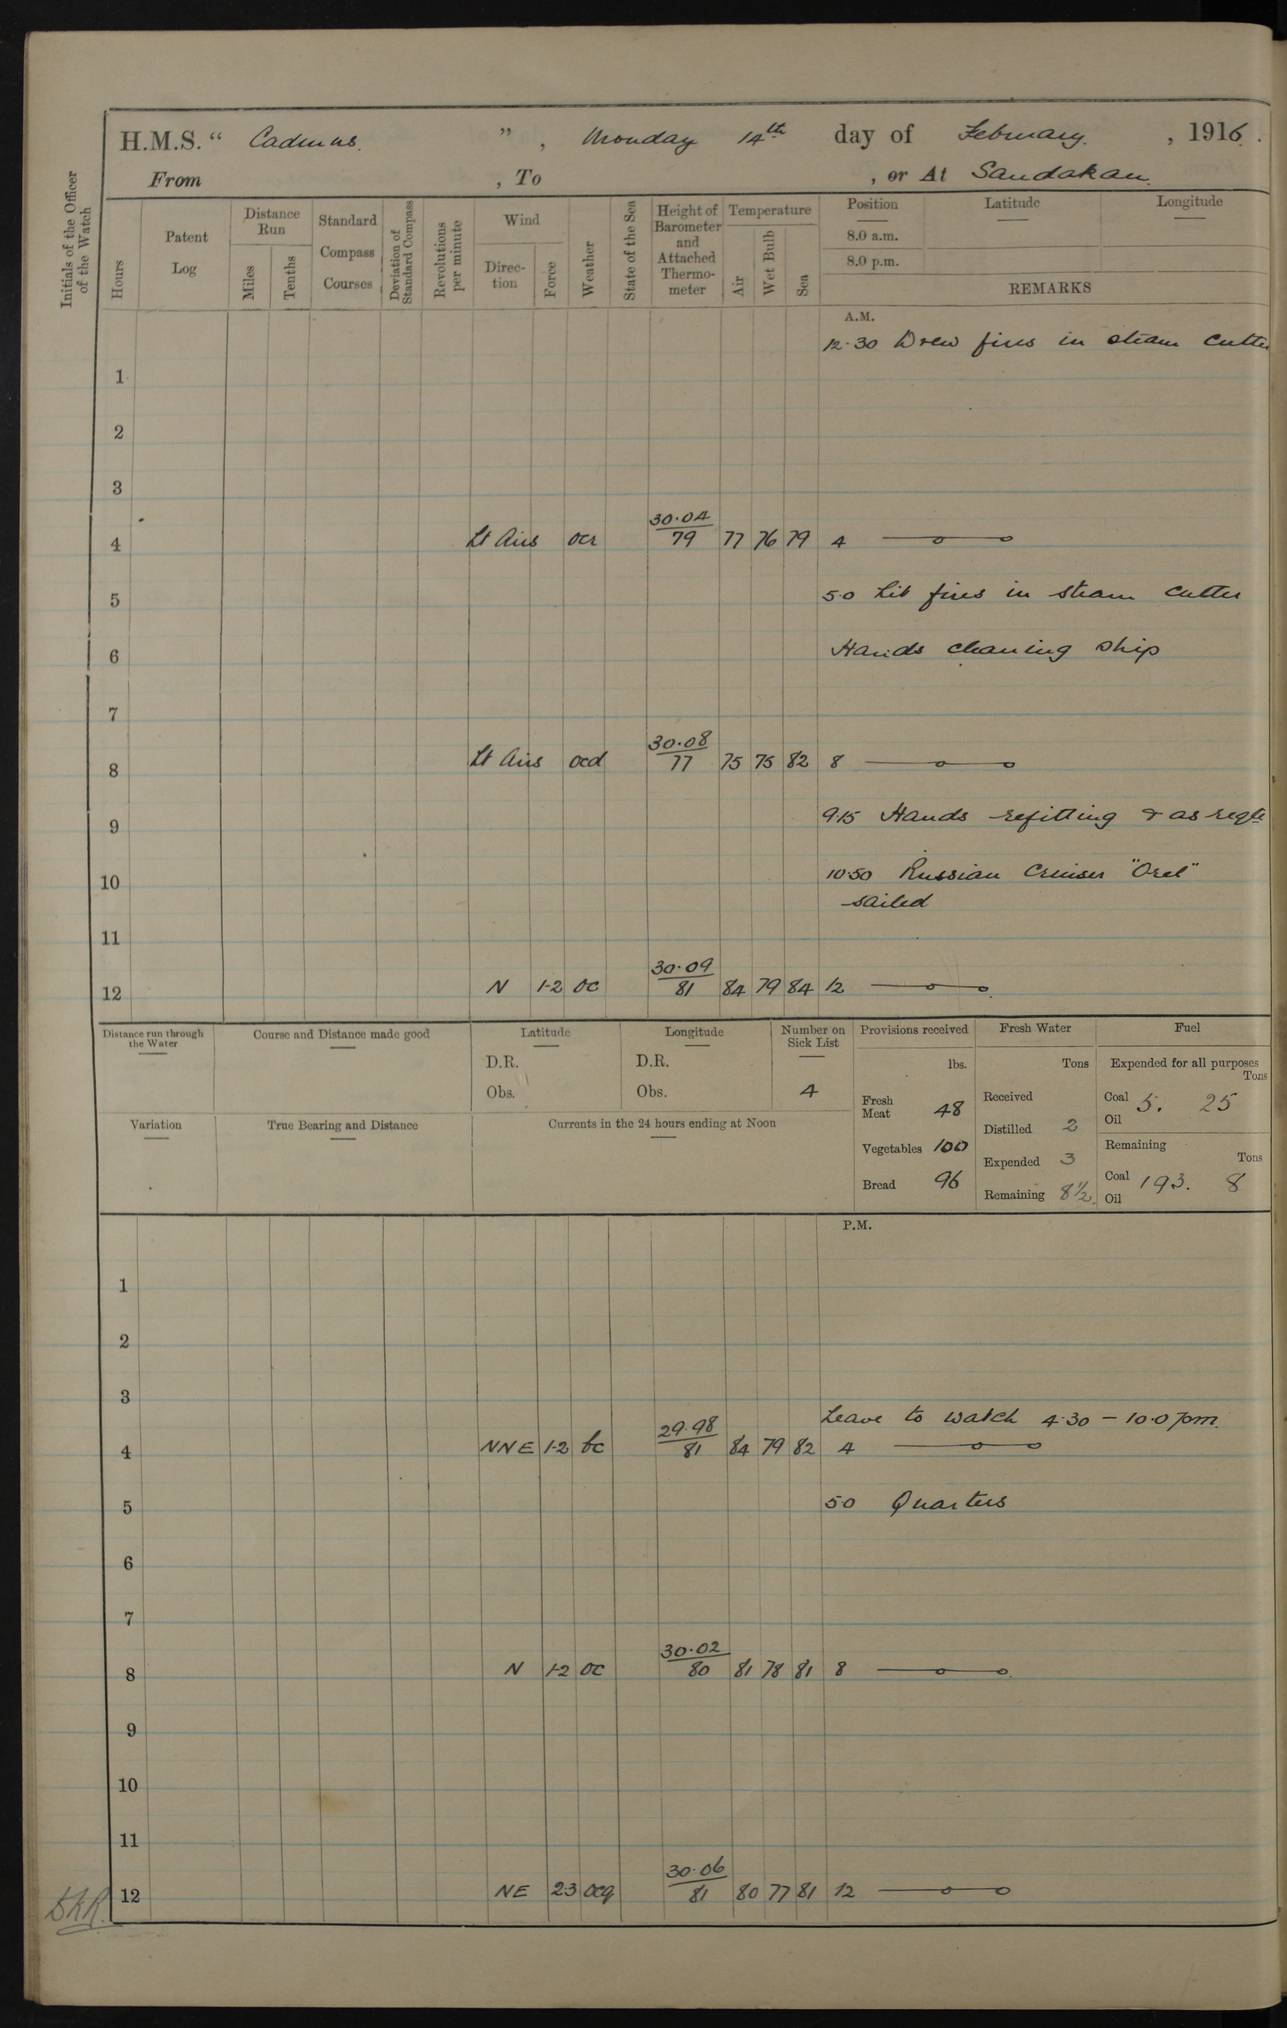 H.M.S. “ Cadmus. ” , Monday 14th day of February. , 1916.
From , To , or At Sandakan.
Initials of the Officer of the Watch
Hours
Patent Log
Distance Run
Miles
Tenths
Standard Compass Courses
Deviation of Standard Compass
Revolutions per minute
Wind
Direc-tion
Force
Weather
State of the Sea
Height of Barometer and Attached Thermo-meter
Temperature
Air
Wet Bulb
Sea
Position Latitude Longitude
8.0 a.m.
8.0 p.m.
REMARKS
A.M.
12.30 Drew fires in steam cutter
1
2
3
30.04
4 Lt Airs ocr 79 77 76 79 4
5 5.0 Lit fires in steam cutter
6 Hands cleaning ship
7
30.08
8 Lt Airs ocd 77 75 75 82 8
9 9.15 Hands refitting & as reqte
10 10.50 Russian Cruiser "Orel"
sailed
11
30.09
12 N 1-2 oc 81 84 79 84 12
Distance run through the Water
Course and Distance made good
Latitude
D.R.
Obs.
Longitude
D.R.
Obs.
Number on Sick List
4
Variation
True Bearing and Distance
Currents in the 24 hours ending at Noon
Provisions received
lbs.
Fresh Meat 48
Vegetables 100
Bread 96
Fresh Water
Tons
Received
Distilled 2
Expended 3
Remaining 8½.
Fuel
Expended for all purposes
Tons
Coal 5. 25
Oil
Remaining
Tons
Coal 193. 8
Oil
P.M.
1
2
3
Leave to watch 4.30 - 10.0 pm.
29.98
4 NNE 1-2 bc 81 84 79 82 4
5 5.0 Quarters
6
7
30.02
8 N 1-2 oc 80 81 78 81 8
9
10
11
30.06
12 NE 2-3 ocq 81 80 77 81 12